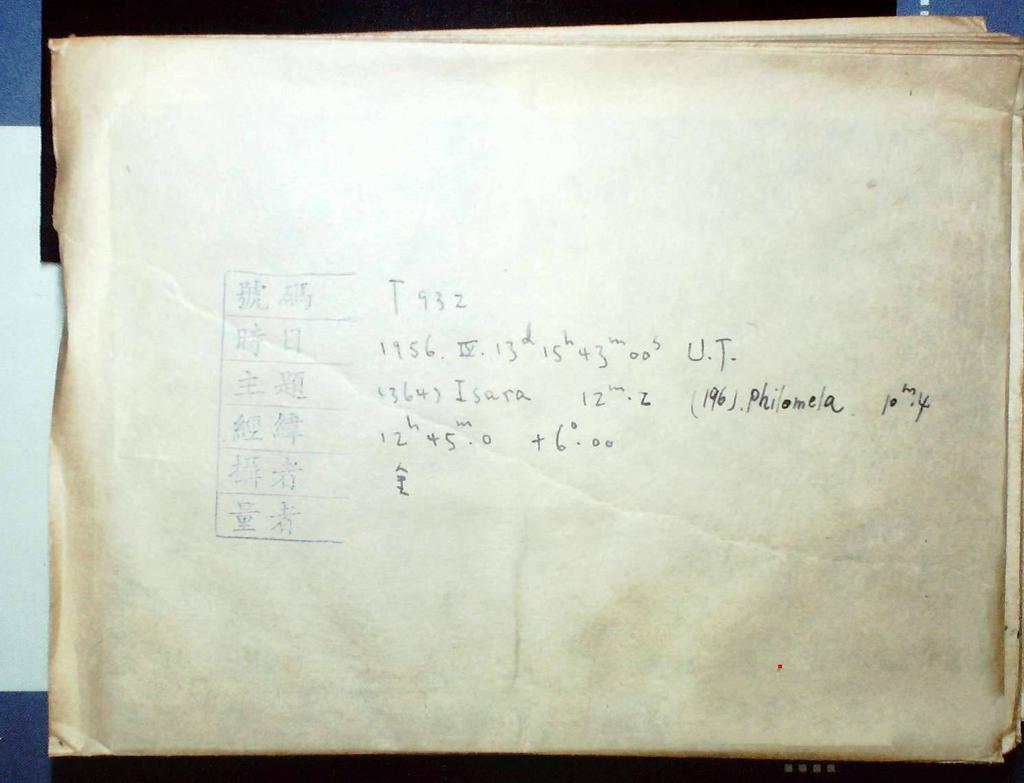 號碼 T 932
時日 1956. Ⅳ. 13ᵈ 15ʰ 43ᵐ 00ˢ U.T.
主題 (364) Isara 12ᵐ.2 (196). Philomela. 10ᵐ.4
經緯 12ʰ 45ᵐ.0 +6°.00
攝者
量者